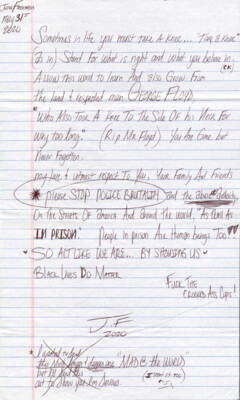 May 31st
2020
Sometimes in life you must take a Knee... "Take a Knee"
(as in) Stand For what is right and what you believe in.
(CK)
A wow this want to learn And also Grow From
the loved & respected man GEORGE FLOYD,
"Who Also Took A Knee To The Side Of his Neck For
way too long." (R.i.p Mr. Floyd) You Are Gone but
Never Forgotten.
my Love & utmost respect To You, Your Family And Friends
* please STOP POLICE BRUTALITY and the
On the Streets Of America And Around the World, "As Well As
IN PRISON." People in prison Are Human beings Too!!
SO ACT LIKE WE ARE... BY SHOWING US
BLACK LIVES DO MATTER.
FUCK THE
CROOKED ASS COPS!
J.F
2020
"MAD @ the WORLD"